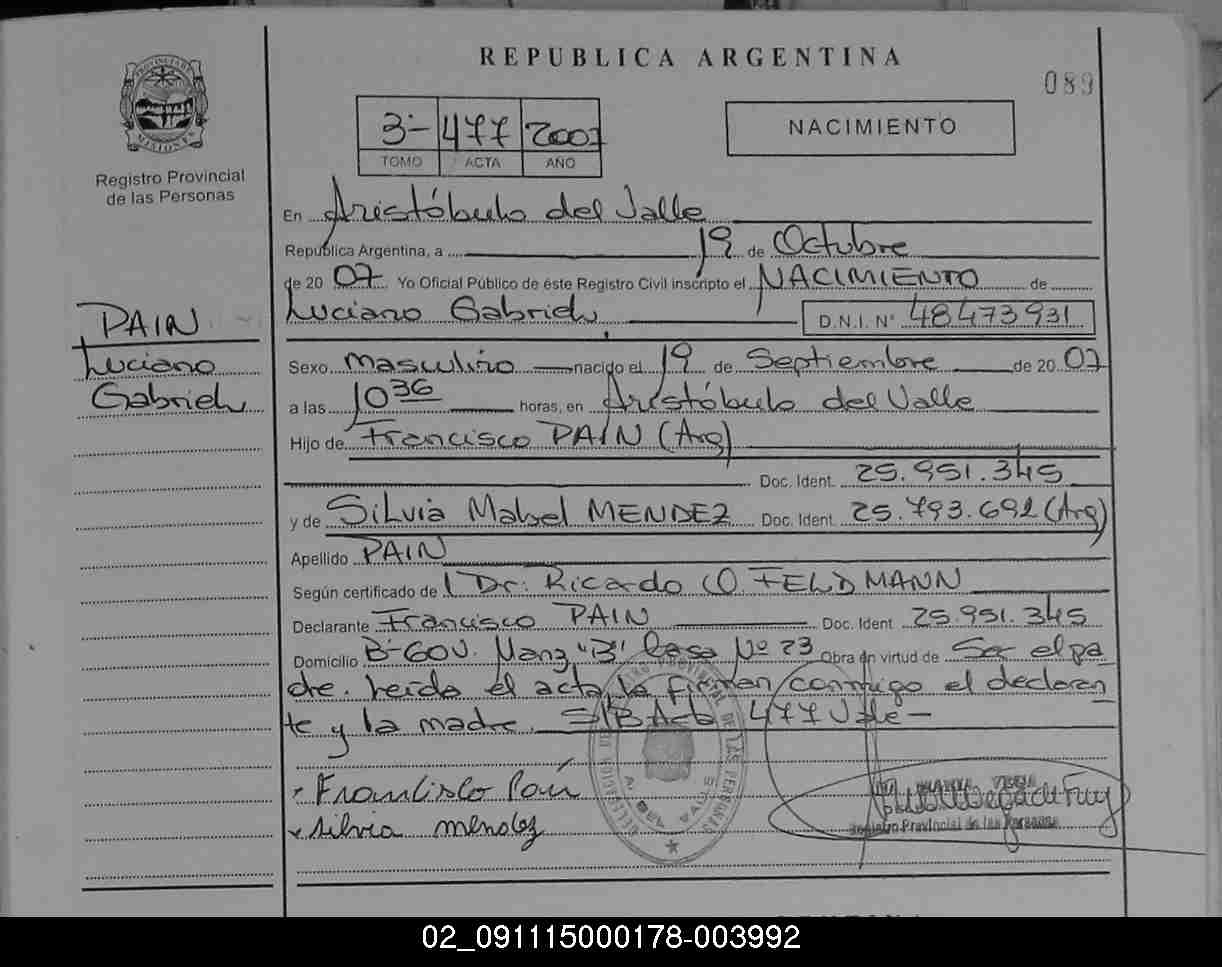 REPUBLICA ARGENTINA
089
PROVINCIA DE MISIONES
Registro Provincial
de las Personas
3- 477 2007
TOMO ACTA AÑO
NACIMIENTO
En Aristóbulo del Valle
República Argentina, a 19 de Octubre
de 20 07 Yo Oficial Público de éste Registro Civil inscripto el NACIMIENTO de
Luciano Gabriel D.N.I. N° 48473931
PAIN
Luciano
Gabriel
Sexo Masculino nacido el 19 de Septiembre de 20 07
a las 10 36 horas, en Aristóbulo del Valle
Hijo de Francisco PAIN (Arg)
Doc. Ident. 25.951.345
y de Silvia Mabel MENDEZ Doc. Ident. 25.793.692 (Arg)
Apellido PAIN
Según certificado de Dr. Ricardo O FELDMANN
Declarante Francisco PAIN Doc. Ident 25.951.345
Domicilio B-GOV. Manz "B" Casa Nº 23 Obra en virtud de Ser el pa
dre. Leída el acta, la firman conmigo el declaran
te y la madre. S/B Acta 477 Vale -
Francisco Pain
silvia mendez
Registro Provincial de las Personas
02_091115000178-003992